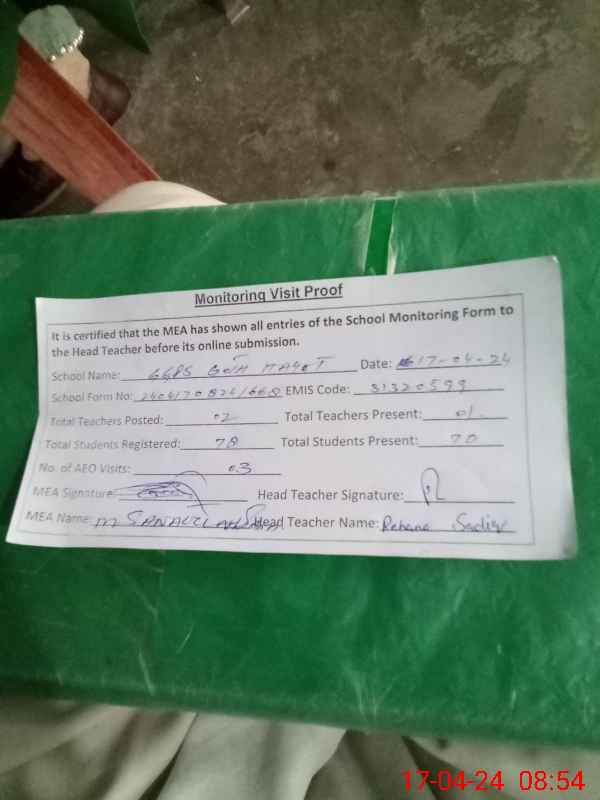 Monitoring Visit Proof
It is certified that the MEA has shown all entries of the School Monitoring Form to
the Head Teacher before its online submission.
School Name: GGPS Date: 17-04-24
School Form No: EMIS Code: 31320599
Total Teachers Posted: 02 Total Teachers Present: 01
Total Students Registered: 78 Total Students Present: 70
No. of AEO Visits: 03
MEA Signature: Head Teacher Signature:
MEA Name: M Head Teacher Name: Rehana Sadiq
17-04-24 08:54